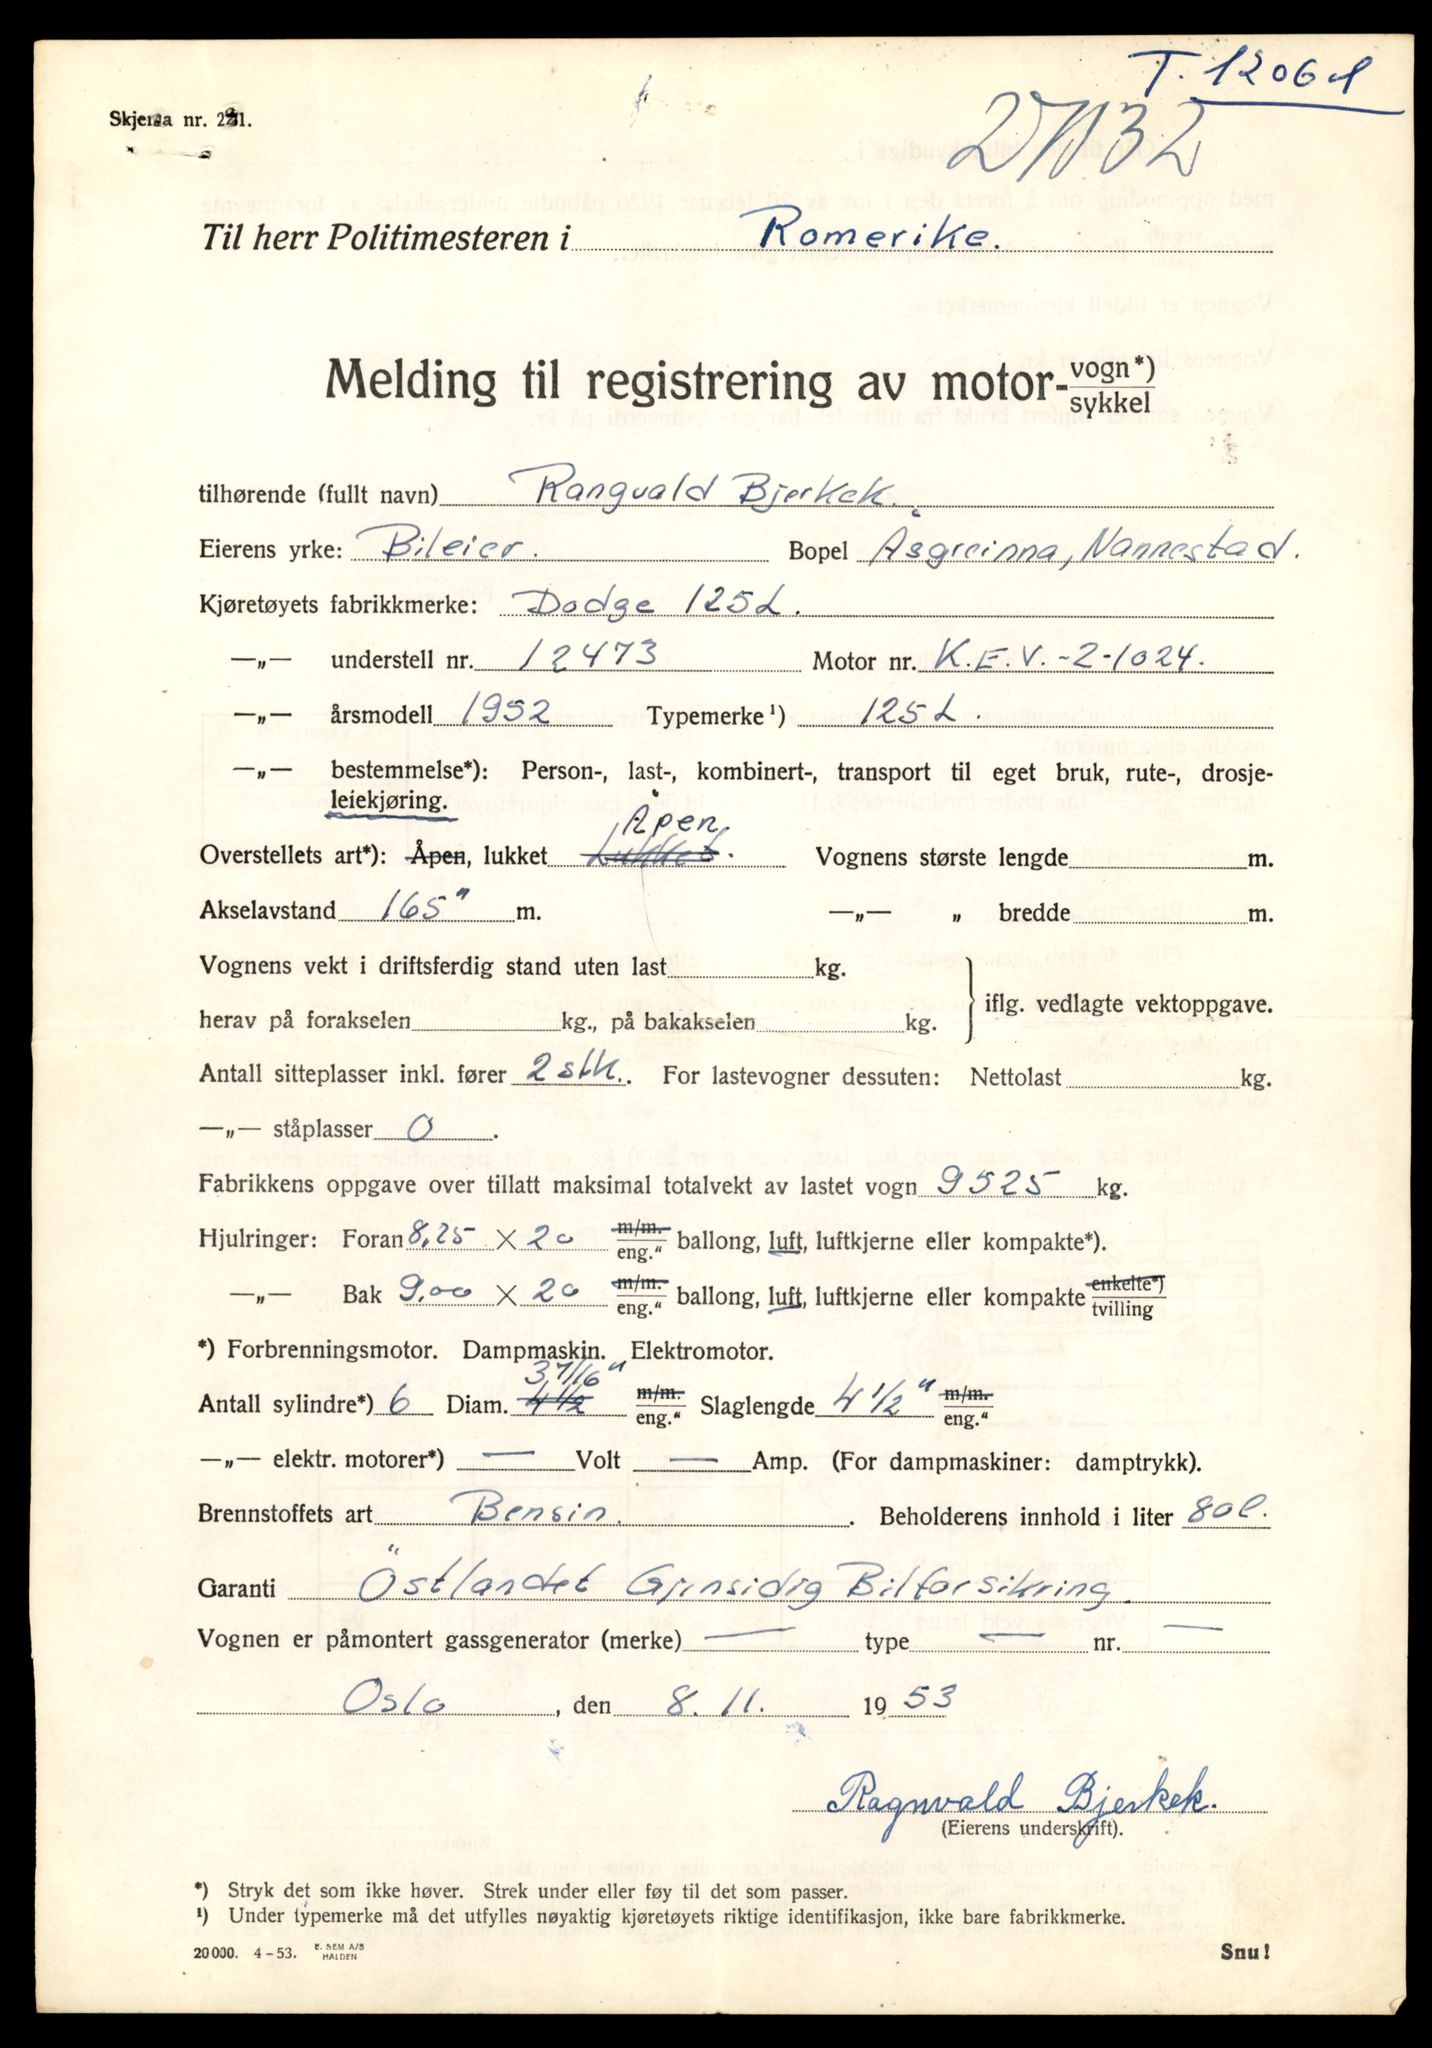 T. 12061
Skjema nr. 221.
27132
Til herr Politimesteren i Romerike.
Melding til registrering av motor- vogn*) sykkel
tilhørende (fullt navn) Rangvald Bjerkek.
Eierens yrke: Bileier. Bopel Åsgreinna, Nannestad.
Kjøretøyets fabrikkmerke: Dodge 125L.
—„— understell nr. 12473 Motor nr. K.E.V.-2-1024.
—„— årsmodell 1952 Typemerke¹) 125L.
—„— bestemmelse*): Person-, last-, kombinert-, transport til eget bruk, rute-, drosje-
leiekjøring.
Åpen.
Overstellets art*): Åpen, lukket Lukket. Vognens største lengde m.
Akselavstand 165" m. —„— „ bredde m.
Vognens vekt i driftsferdig stand uten last kg.
herav på forakselen kg., på bakakselen kg. iflg. vedlagte vektoppgave.
Antall sitteplasser inkl. fører 2 stk. For lastevogner dessuten: Nettolast kg.
—„— ståplasser 0.
Fabrikkens oppgave over tillatt maksimal totalvekt av lastet vogn 9525 kg.
Hjulringer: Foran 8,25 × 20 m/m. eng.“ ballong, luft, luftkjerne eller kompakte*).
—„— Bak 9,00 × 20 m/m. eng.“ ballong, luft, luftkjerne eller kompakte enkelte*) tvilling
*) Forbrenningsmotor. Dampmaskin. Elektromotor.
3 7/16"
Antall sylindre*) 6 Diam. 4 1/2 m/m. eng.“ Slaglengde 4 1/2" m/m. eng.“
—„— elektr. motorer*) — Volt — Amp. (For dampmaskiner: damptrykk).
Brennstoffets art Bensin. Beholderens innhold i liter 80 l.
Garanti Östlandet Gjensidig Bilforsikring.
Vognen er påmontert gassgenerator (merke) — type — nr. —
Oslo, den 8.11. 1953
Ragnvald Bjerkek.
(Eierens underskrift).
*) Stryk det som ikke høver. Strek under eller føy til det som passer.
¹) Under typemerke må det utfylles nøyaktig kjøretøyets riktige identifikasjon, ikke bare fabrikkmerke.
20 000. 4-53. E. SEM A/S HALDEN Snu!